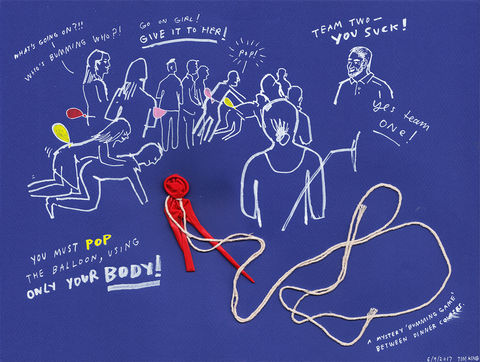 WHAT'S GOING ON?!!
WHO'S BUMMING WHO?!
GO ON GIRL!
GIVE IT TO HER!
POP!
TEAM TWO—
YOU SUCK!
Yes team
ONE!
YOU MUST POP
THE BALLOON, USING
ONLY YOUR BODY!
A MYSTERY 'BUMMING GAME'
BETWEEN DINNER COURSES.
6/9/2017 TIM KING